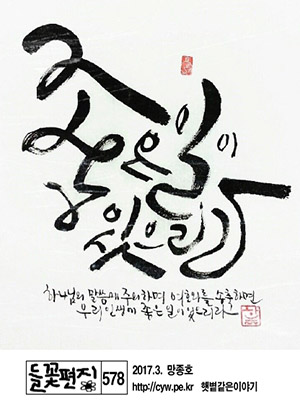 좋은 일이
있으리라
하나님의 말씀에 주의하며 여호와를 의지하면
우리 인생에 좋은 일이 있으리라
들꽃편지 578
2017.3. 망종호
http://cyw.pe.kr 햇볕같은이야기